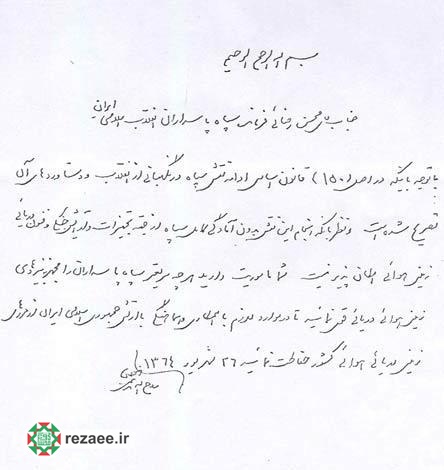 بسم الله الرحمن الرحیم
جناب آقای محسن رضائی فرمانده سپاه پاسداران انقلاب اسلامی ایران
با توجه باینکه در اصل (۱۵۰) قانون اساسی ادامه نقش سپاه در نگهبانی از انقلاب و دستاوردهای آن
تصریح شده است و نظر باینکه انجام این نقش بدون آمادگی کامل سپاه از جهت تجهیزات و آموزش جنگی و فنون دریائی
زمینی هوائی امکان پذیر نیست شما ماموریت دارید هر چه سریعتر سپاه پاسداران را مجهز به نیروهای
زمینی هوائی دریائی قوی نمائید تا در موارد لازم با هماهنگی با ارتش جمهوری اسلامی ایران از مرزهای
زمینی دریائی هوائی کشور حفاظت نمائید ۲۶ شهریور ۱۳۶۴
روح الله الموسوی الخمینی
rezaee.ir